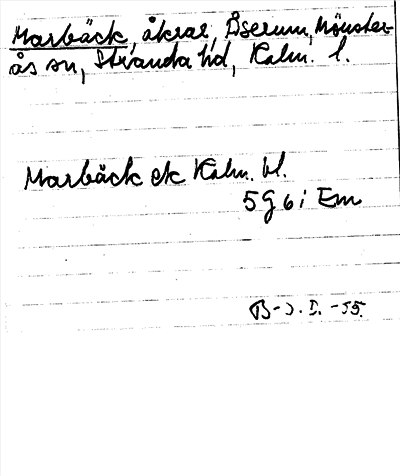 Marbäck, åkrar, Åserum, Mönster-
ås sn, Stranda hd, Kalm. l.
Marbäck ek Kalm. bl.
5 g 6 i Em
B-J. I. -55.